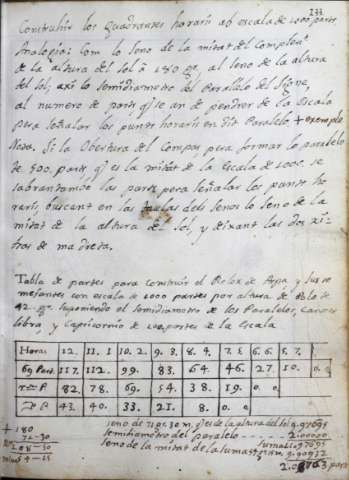 144
Construhir los quadrantes horaris ab escala de 1000 parts
Analogia: Com lo seno de la mitat del Complent
de la altura del sol à 180 gs. al seno de la altura
del sol; axi lo semidiametro del Paralelo del signe,
al numero de parts q̃ se an de pendrer de la escala
pera señalar los punts horaris en dit Paralelo, + exemplo
Nota. Si la Obertura del Compas pera formar lo paralelo
de 500. parts, q̃ es la mitat de la Escala de 1000. se
sabran tambe las parts pera señalar los punts ho
raris, buscant en las taulas dels senos lo seno de la
mitat de la altura del sol, y deixant las dos xi
tras de ma dreta.
Tabla de partes para construir el Relox de Arpa y sus se
mejantes con escala de 1000 partes por altura de Polo de
42. gs. suponiendo el semidiametro de los Paralelos, Cancer
libra, y Capricornio de 100 partes de la Escala
Horas 12. 11. 1 10. 2. 9. 3. 8. 4. 7. 5. 6. 6. 5. 7.
69 Part. 117. 112. 99. 83. 64. 46. 27. 10. 0. 0
♈♎ P 82. 78. 69. 54. 38. 19. 0. 0
P 43. 40. 33. 21. 8. 0. 0
+ 180
seno de 71 gs. 30 m. q̃ es de la altura del sol 9.97695
semidiametro del paralelo 2.00000
seno de la mitat de la suma